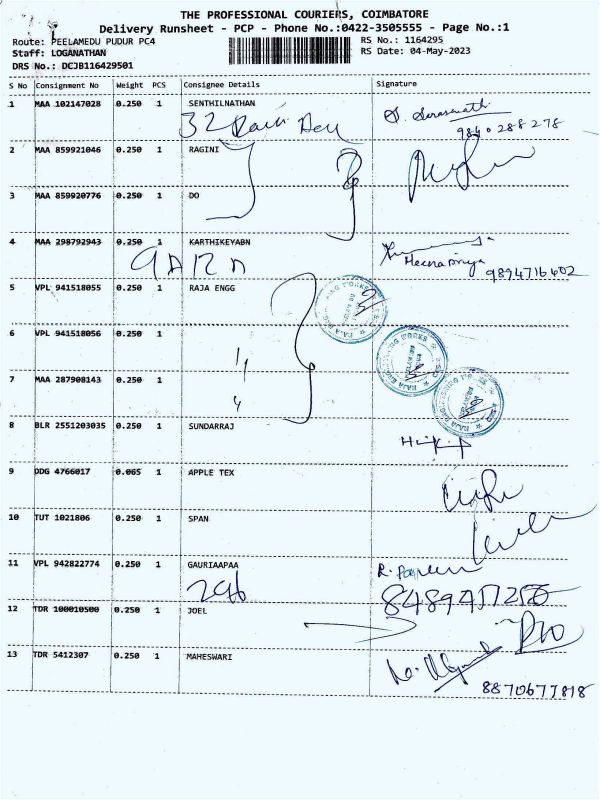 THE PROFESSIONAL COURIERS, COIMBATORE
Delivery Runsheet - PCP - Phone No.:0422-3505555 - Page No.:1
Route: PEELAMEDU PUDUR PC4
RS No.: 1164295
Staff: LOGANATHAN
RS Date: 04-May-2023
DRS No.: DCJB116429501
S No Consignment No Weight PCS Consignee Details Signature
1 MAA 102147028 0.250 1 SENTHILNATHAN
32
9840288278
2 MAA 859921046 0.250 1 RAGINI
3 MAA 859920776 0.250 1 DO
4 MAA 298792943 0.250 1 KARTHIKEYABN
Meenapriya 9894716402
5 VPL 941518055 0.250 1 RAJA ENGG
6 VPL 941518056 0.250 1
7 MAA 287908143 0.250 1
8 BLR 2551203035 0.250 1 SUNDARRAJ
9 DDG 4766017 0.065 1 APPLE TEX
10 TUT 1021806 0.250 1 SPAN
11 VPL 942822774 0.250 1 GAURIAAPAA
12 TDR 100010500 0.250 1 JOEL
13 TDR 5412307 0.250 1 MAHESWARI
8870677818